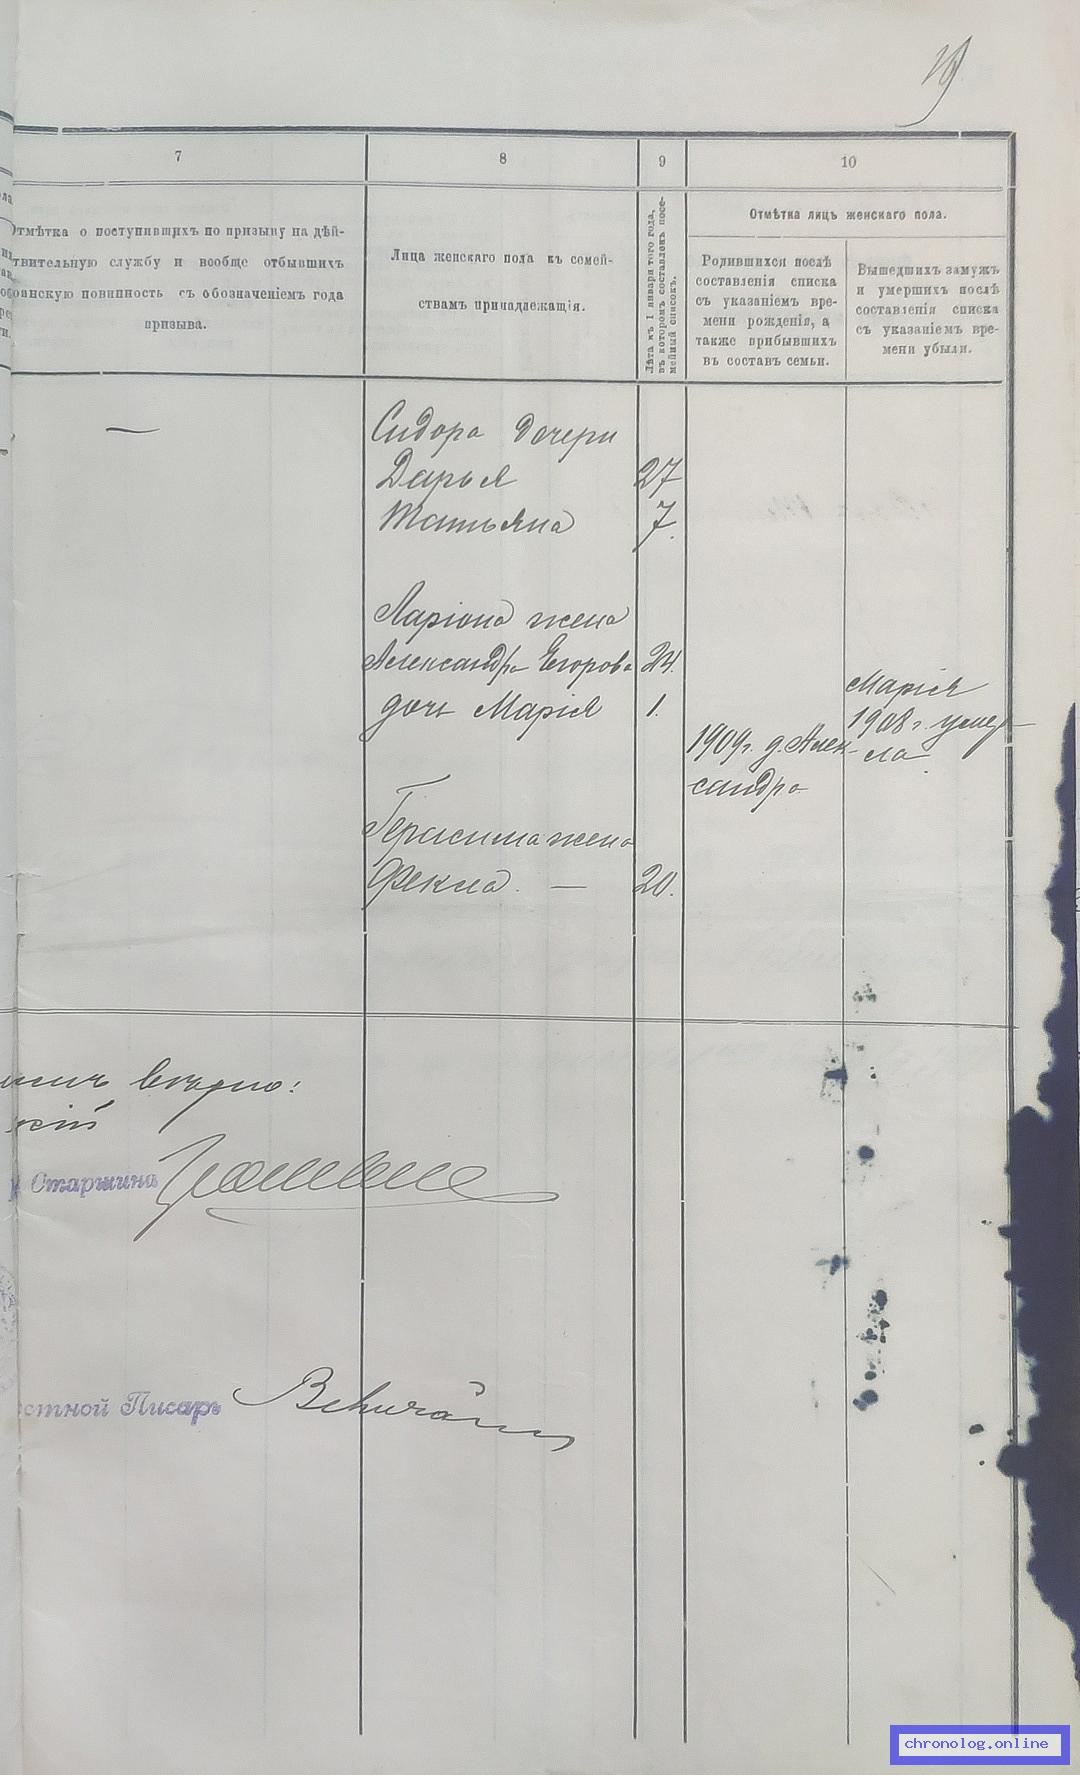 19
7
8
9
10
Отмѣтка о поступившихъ по призыву на дѣй-
твительную службу и вообще отбывшихъ
воинскую повинность съ обозначеніемъ года
призыва.
Лица женскаго пола къ семей-
ствамъ принадлежащія.
Лѣта къ 1 января того года,
въ которомъ составленъ посе-
мейный списокъ.
Отмѣтка лицъ женскаго пола.
Родившихся послѣ
составленія списка
съ указаніемъ вре-
мени рожденія, а
также прибывшихъ
въ составъ семьи.
Вышедшихъ замужъ
и умершихъ послѣ
составленія списка
съ указаніемъ вре-
мени убыли.
—
Сидора дочери
Дарья 27
Татьяна 7.
Ларіона жена
Александра Егорова 24.
дочь Марія 1.
Марія
1908 г. умер-
ла.
1909 г. д. Алек-
сандра
Герасима жена
Фекла. — 20.
вѣрно:
кій
Старшина
стной Писарь
chronolog.online